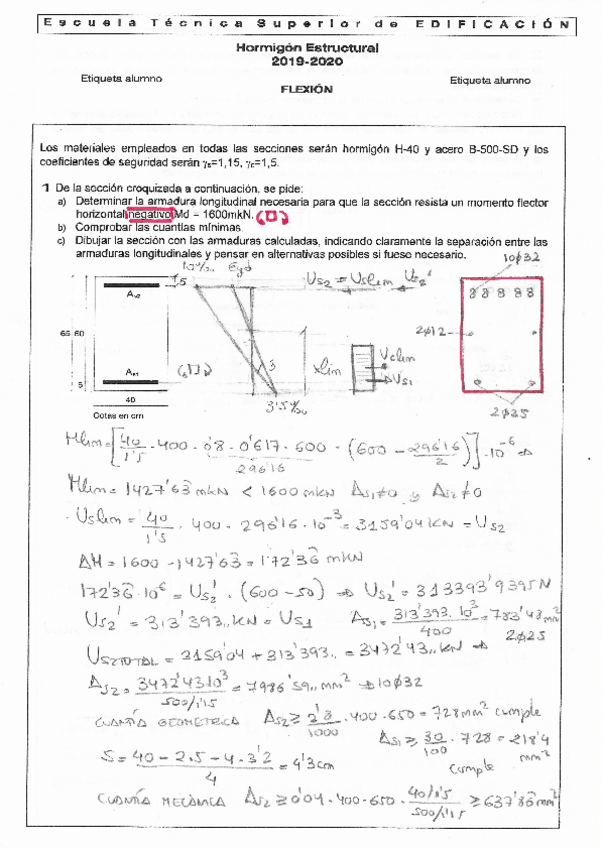 Escuela Técnica Superior de EDIFICACIÓN
Hormigón Estructural
2019-2020
Etiqueta alumno
Etiqueta alumno
FLEXIÓN
Los materiales empleados en todas las secciones serán hormigón H-40 y acero B-500-SD y los
coeficientes de seguridad serán γs=1,15, γc=1,5.
1 De la sección croquizada a continuación, se pide:
a) Determinar la armadura longitudinal necesaria para que la sección resista un momento flector
horizontal negativo Md = 1600mkN.
b) Comprobar las cuantías mínimas.
c) Dibujar la sección con las armaduras calculadas, indicando claramente la separación entre las
armaduras longitudinales y pensar en alternativas posibles si fuese necesario.
10‰ Eyd Us2 = Uslim Us2' 10ϕ32
As2 5
65 60 2ϕ12
xlim Uclim
Us1
As1 5
40 3'5‰ 2ϕ25
Cotas en cm
Mlim = [40/1'5 · 400 · 0'8 · 0'617 · 600 · (600 - 296'16/2)] · 10^-6 ⇒
296'16
Mlim = 1427'63 mkN < 1600 mkN As1≠0 y As2≠0
· Uslim = 40/1'5 · 400 · 296'16 · 10^-3 = 3159'04 KN = Us2
ΔM = 1600 - 1427'63 = 172'36 mkN
172'36 · 10^6 = Us2' · (600 - 50) ⇒ Us2' = 313393'9395N
Us2' = 313'393.. KN = Us1 As1 = 313'393 · 10^3/400 = 783'48 mm²
2ϕ25
Us2TOTAL = 3159'04 + 313'393.. = 3472'43.. KN ⇒
As2 = 3472'43·10^3/500/1'15 = 7986'59.. mm² ⇒ 10ϕ32
CUANTÍA GEOMÉTRICA As2 ≥ 2'8/1000 · 400 · 650 = 728mm² cumple
As1 ≥ 30/100 · 728 = 218'4 mm²
cumple
S = 40 - 2·5 - 4·3'2/4 = 4'3cm
CUANTÍA MECÁNICA As2 ≥ 0'04 · 400 · 650 · 40/1'5/500/1'15 ≥ 637'86mm²